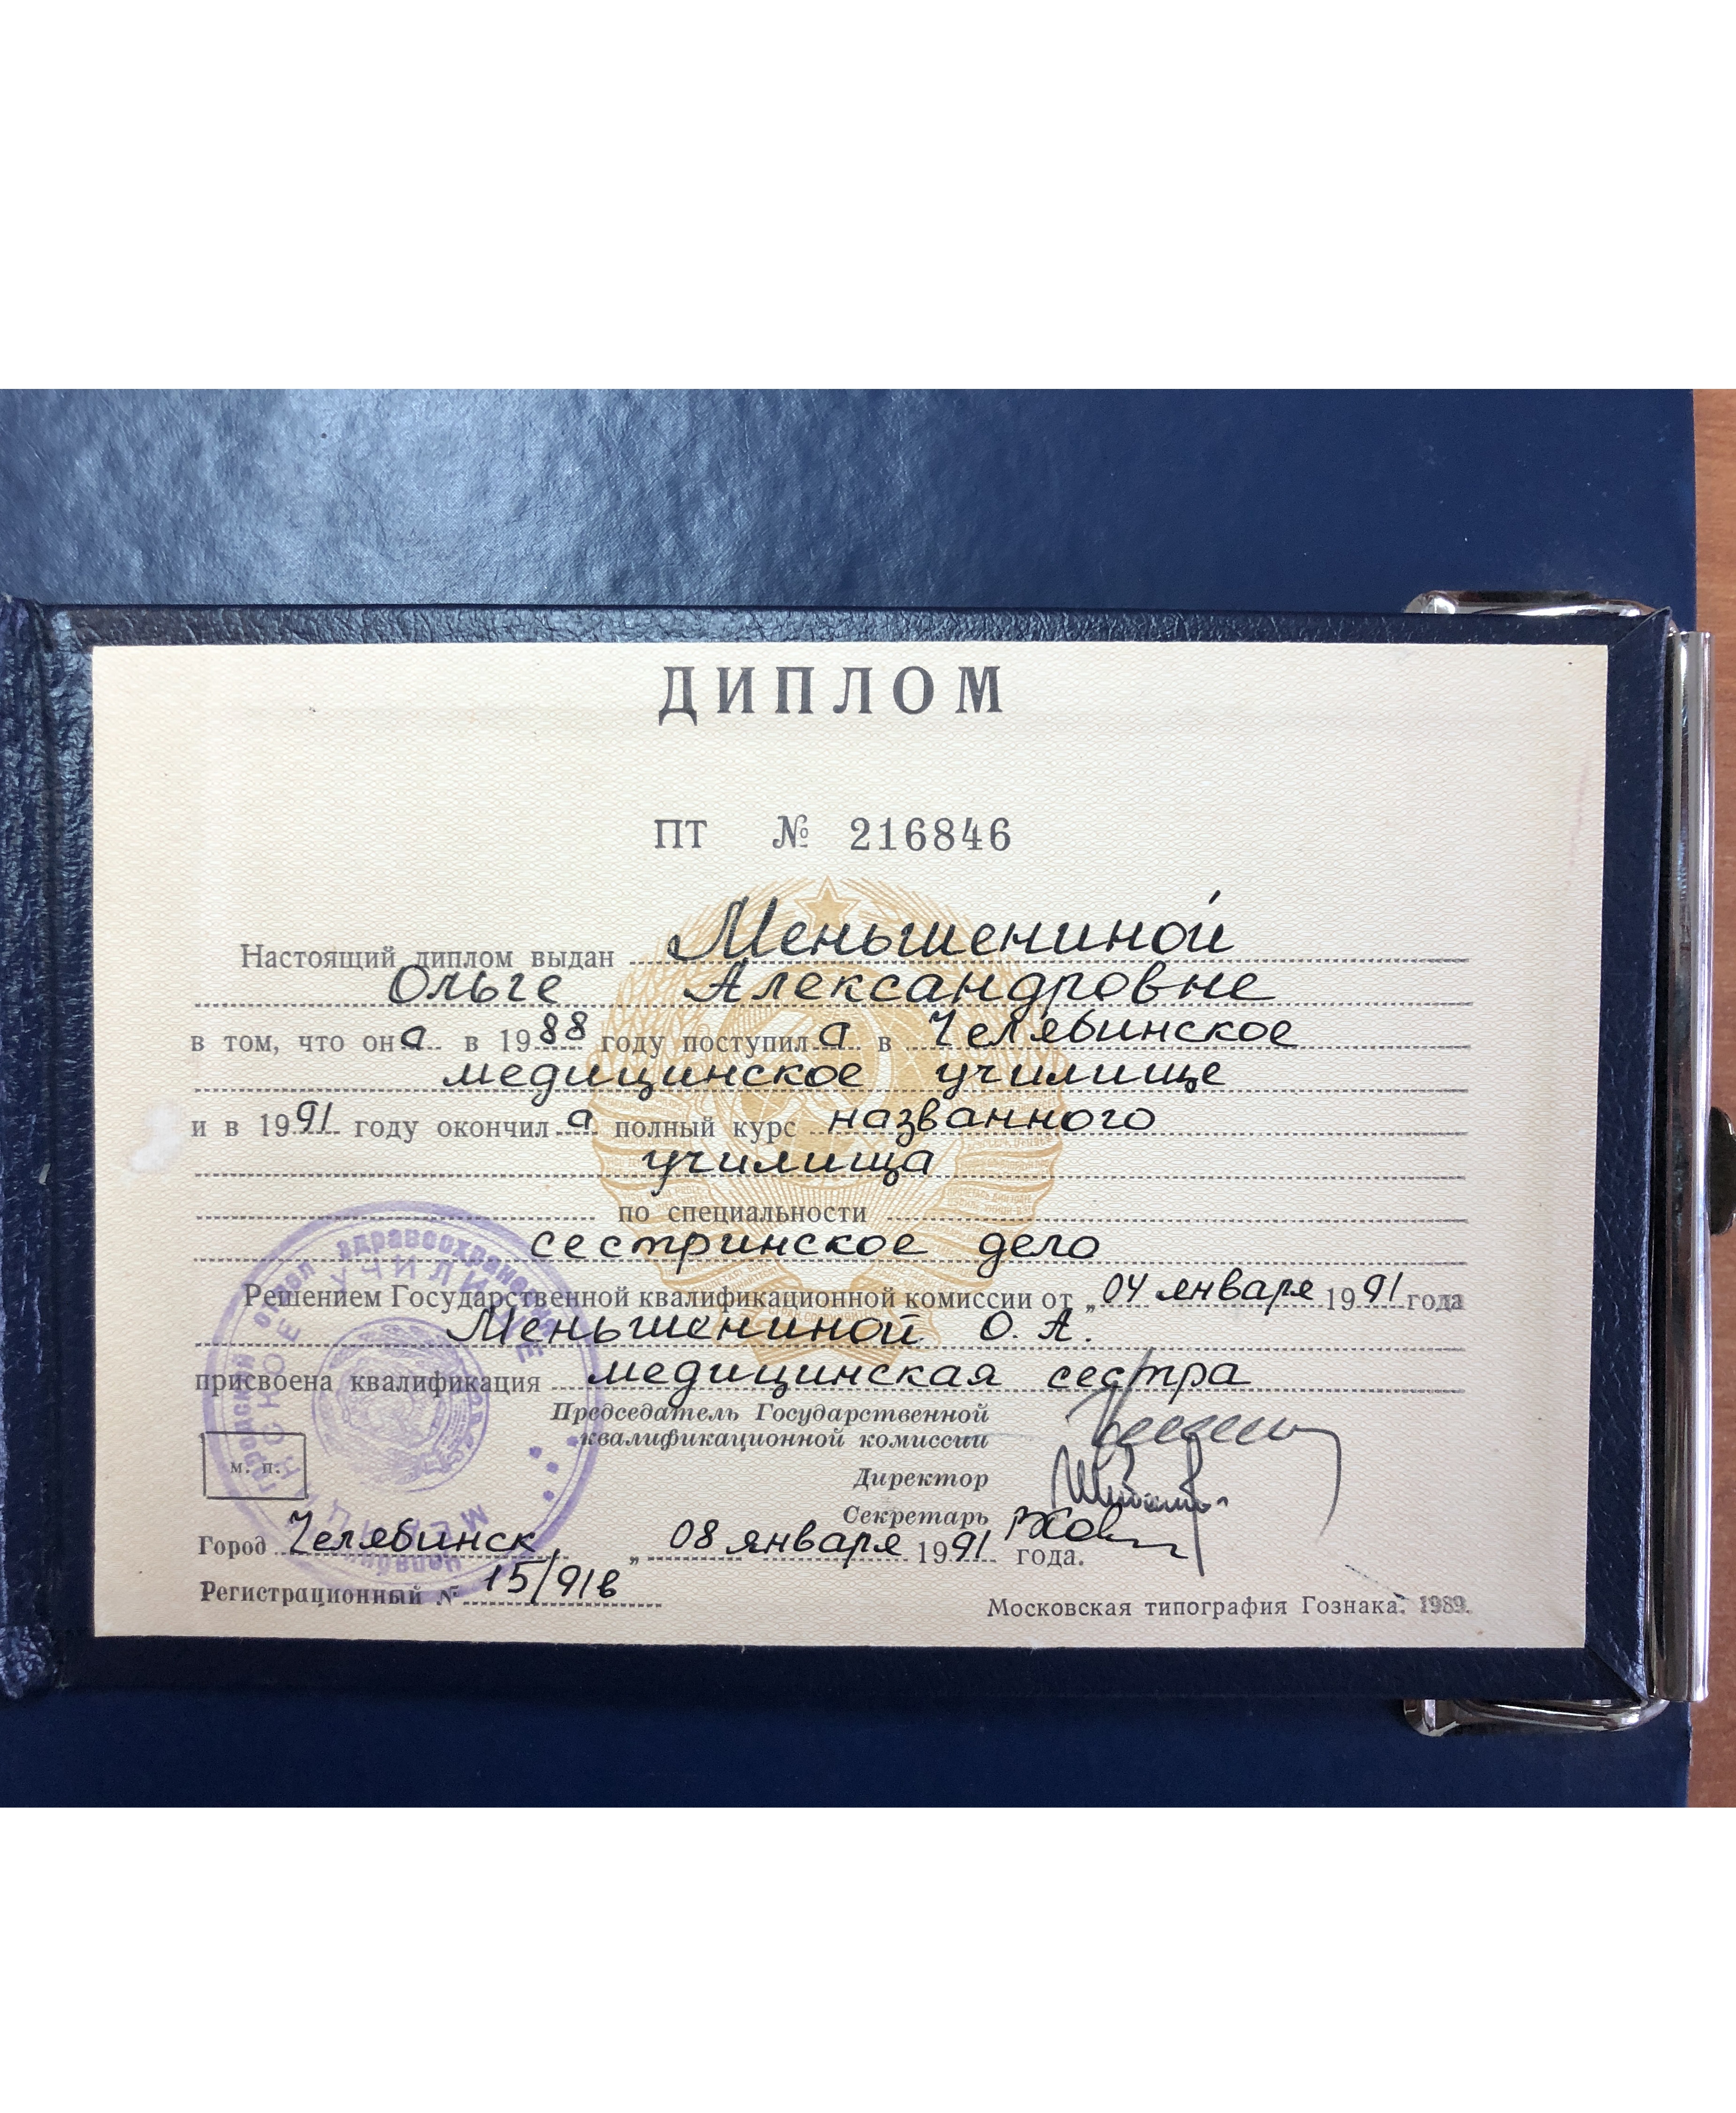 ДИПЛОМ
ПТ № 216846
Настоящий диплом выдан Меньшениной
Ольге Александровне
в том, что она в 1988 году поступила в Челябинское
медицинское училище
и в 1991 году окончила полный курс названного
училища
по специальности
сестринское дело
Решением Государственной квалификационной комиссии от „04 января 1991 года
Меньшениной О. А.
присвоена квалификация медицинская сестра
Председатель Государственной
квалификационной комиссии
Директор
Секретарь
м. п.
Город Челябинск, „08 января 1991 года.
Регистрационный № 15/91в
Московская типография Гознака. 1989.
городской отдел здравоохранения
МЕДИЦИНСКОЕ УЧИЛИЩЕ